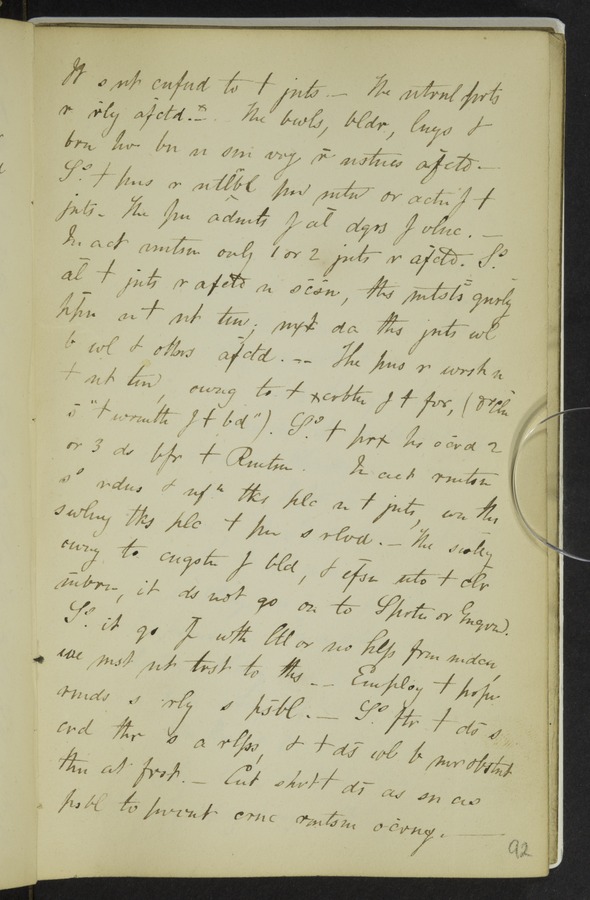 It s nt cnfnd to t jnts. — The ntrnl prts
r rly afctd. — The bwls, bldr, lngs &
brn hv bn n sm vry r nstncs afctd —
So t pns r ntllbl pn mtn or actn f t
jnts. The pn admts f al dgrs f vlnc. —
In act rmtsm only 1 or 2 jnts r afctd. So
al t jnts r afctd n scsn, ths mtsts gnrly
hpn n t nt tm; nxt da ths jnts wl
b wl & othrs afctd. — The pns r worst n
t nt tm, owng to t xcrbtn f t fvr, (
"t wrmth f t bd"). So t prx hs ocrd 2
or 3 ds bfr t Rmtsm. In act rmtsm
so rdns & tks plc n t jnts, wn ths
swlng tks plc t pn s rlvd. — The swlng
owng to cngstn f bld, & efsn nto t clr
mbrn, it ds not go on to Sprtn or Gngrn.
So it go f wth ltl or no hlp from mdcn,
we mst nt trst to ths — Employ t propr
rmds s rly s psbl. — So ftr t ds s
crd thr s a rlps, & t ds wl b mr obstnt
thn at frst. — Cut short t ds as sn as
psbl to prvent crnc rmtsm ocrng. —
92